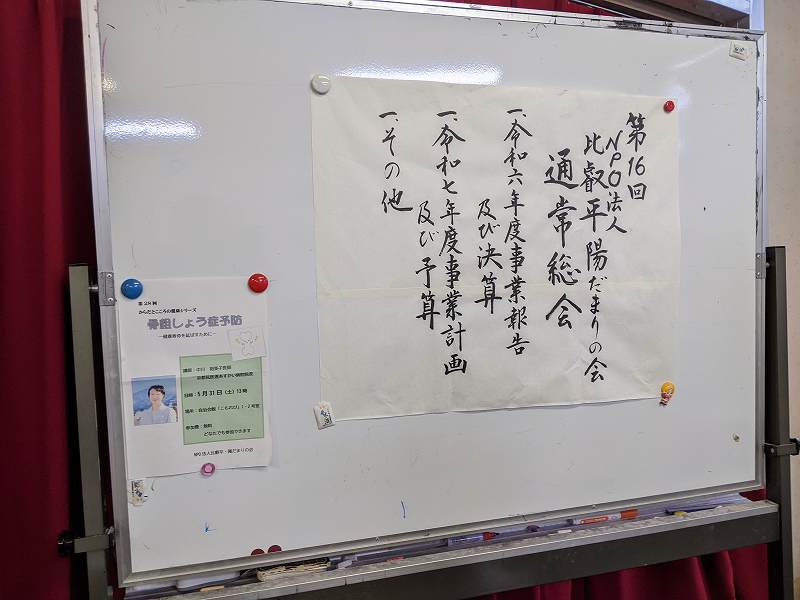 第16回
NPO法人
比叡平陽だまりの会
通常総会
一、令和六年度事業報告
及び決算
一、令和七年度事業計画
及び予算
一、その他
第28回
からだとこころの健康シリーズ
骨粗しょう症予防
―健康寿命を延ばすために―
日時：5月31日（土）13時
参加費：無料
どなたでも参加できます
NPO法人比叡平・陽だまりの会